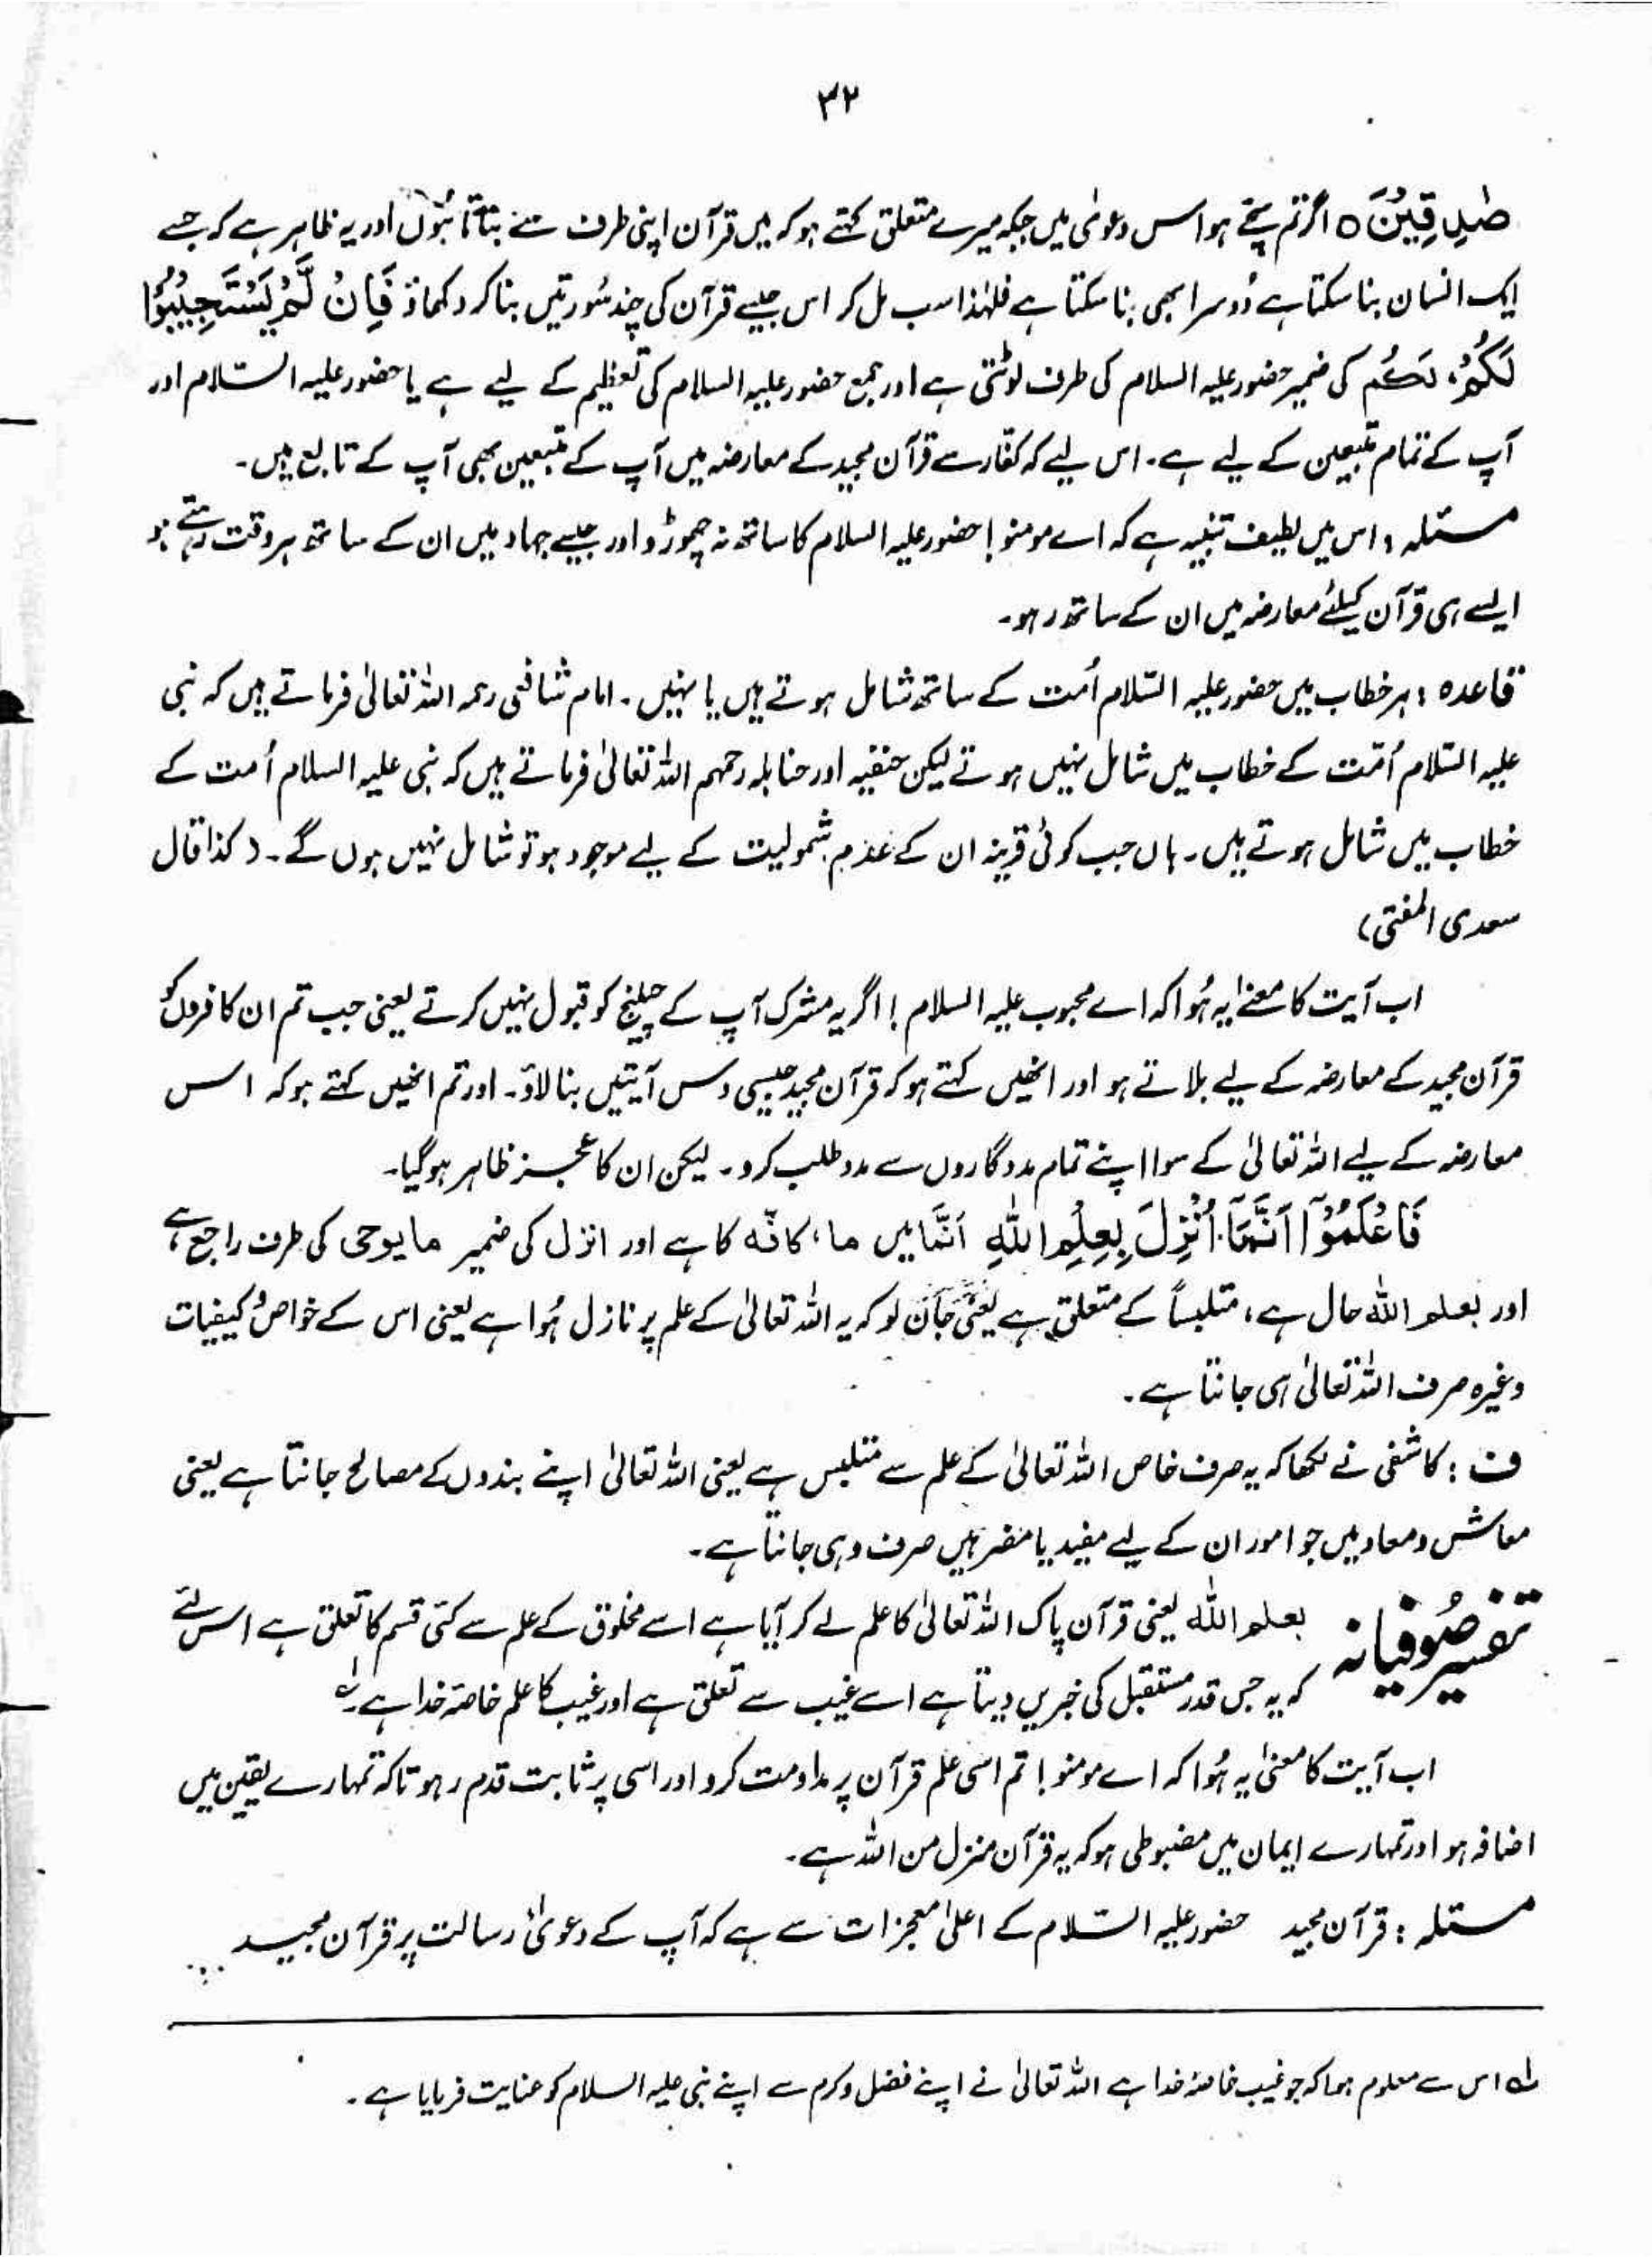 ۳۲
صٰدِقِیْنَ ۵ اگر تم سچے ہو اس دعویٰ میں جبکہ میرے متعلق کہتے ہو کہ میں قرآن اپنی طرف سے بناتا ہُوں اور یہ ظاہر ہے کہ جسے
ایک انسان بنا سکتا ہے دُوسرا بھی بنا سکتا ہے فلہٰذا سب مل کر اس جیسے قرآن کی چند سُورتیں بنا کر دکھاؤ فَاِنْ لَّمْ یَسْتَجِیْبُوْا
لَکُمْ، لکم کی ضمیر حضور علیہ السلام کی طرف لوٹتی ہے اور جمع حضور علیہ السلام کی تعظیم کے لیے ہے یا حضور علیہ السّلام اور
آپ کے تمام متبعین کے لیے ہے۔ اس لیے کہ کفّار سے قرآن مجید کے معارضہ میں آپ کے متبعین بھی آپ کے تابع ہیں۔
مسئلہ : اس میں لطیف تنبیہ ہے کہ اے مومنو! حضور علیہ السلام کا ساتھ نہ چھوڑو اور جیسے جہاد میں ان کے ساتھ ہر وقت رہتے ہو
ایسے ہی قرآن کیلئے معارضہ میں ان کے ساتھ رہو۔
قاعدہ : ہر خطاب میں حضور علیہ السّلام اُمت کے ساتھ شامل ہوتے ہیں یا نہیں۔ امام شافعی رحمہ اللہ تعالیٰ فرماتے ہیں کہ نبی
علیہ السّلام اُمّت کے خطاب میں شامل نہیں ہوتے لیکن حنفیہ اور حنابلہ رحمہم اللہ تعالیٰ فرماتے ہیں کہ نبی علیہ السلام اُمت کے
خطاب میں شامل ہوتے ہیں۔ ہاں جب کوئی قرینہ ان کے عدم شمولیت کے لیے موجود ہو تو شامل نہیں ہوں گے۔ (کذا قال
سعدی المفتی)
اب آیت کا معنٰے یہ ہُوا کہ اے محبوب علیہ السلام! اگر یہ مشرک آپ کے چیلنج کو قبول نہیں کرتے یعنی جب تم ان کافروں کو
قرآن مجید کے معارضہ کے لیے بلاتے ہو اور انھیں کہتے ہو کہ قرآن مجید جیسی دس آیتیں بنا لاؤ۔ اور تم انھیں کہتے ہو کہ اس
معارضہ کے لیے اللہ تعالیٰ کے سوا اپنے تمام مددگاروں سے مدد طلب کرو۔ لیکن ان کا عجز ظاہر ہو گیا۔
فَاعْلَمُوْٓا اَنَّمَآ اُنْزِلَ بِعِلْمِ اللّٰہِ اَنَّمَا میں ما، کافّہ کا ہے اور انزل کی ضمیر مایوحی کی طرف راجع ہے
اور بعلم اللہ حال ہے، متلبساً کے متعلق ہے یعنی جان لو کہ یہ اللہ تعالیٰ کے علم پر نازل ہُوا ہے یعنی اس کے خواص و کیفیات
وغیرہ صرف اللہ تعالیٰ ہی جانتا ہے۔
ف : کاشفی نے لکھا کہ یہ صرف خاص اللہ تعالیٰ کے علم سے متلبس ہے یعنی اللہ تعالیٰ اپنے بندوں کے مصالح جانتا ہے یعنی
معاش و معاد میں جو امور ان کے لیے مفید یا مضر ہیں صرف وہی جانتا ہے۔
تفسیر صُوفیانہ بعلم اللہ یعنی قرآن پاک اللہ تعالیٰ کا علم لے کر آیا ہے اسے مخلوق کے علم سے کئی قسم کا تعلق ہے اس لئے
کہ یہ جس قدر مستقبل کی خبریں دیتا ہے اسے غیب سے تعلق ہے اور غیب کا علم خاصّہ خدا ہے۔ لہ
اب آیت کا معنیٰ یہ ہُوا کہ اے مومنو! تم اسی علم قرآن پر مداومت کرو اور اسی پر ثابت قدم رہو تاکہ تمہارے یقین میں
اضافہ ہو اور تمہارے ایمان میں مضبوطی ہو کہ یہ قرآن منزل من اللہ ہے۔
مسئلہ : قرآن مجید حضور علیہ السّلام کے اعلیٰ معجزات سے ہے کہ آپ کے دعویٰ رسالت پر قرآن مجید
لہ اس سے معلوم ہوا کہ جو غیب خاصۂ خدا ہے اللہ تعالیٰ نے اپنے فضل و کرم سے اپنے نبی علیہ السلام کو عنایت فرمایا ہے۔